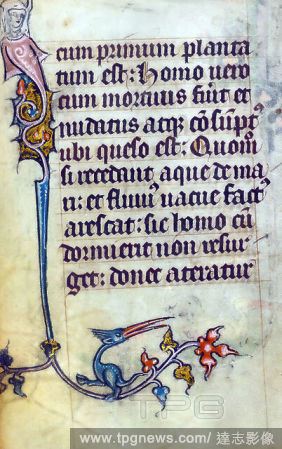 cum primum planta
tum est: Homo uero
cum mortuus fuīt et
nudatus atqȝ cōsūptꝰ
ubi queso est: Quom̄
si recedant aque de ma
ri: et fluuiꝰ uacue factꝰ
arescat: sic homo cū
dormierit non resur
get: donec ateratur
TPG
www.tpgnews.com/達志影像